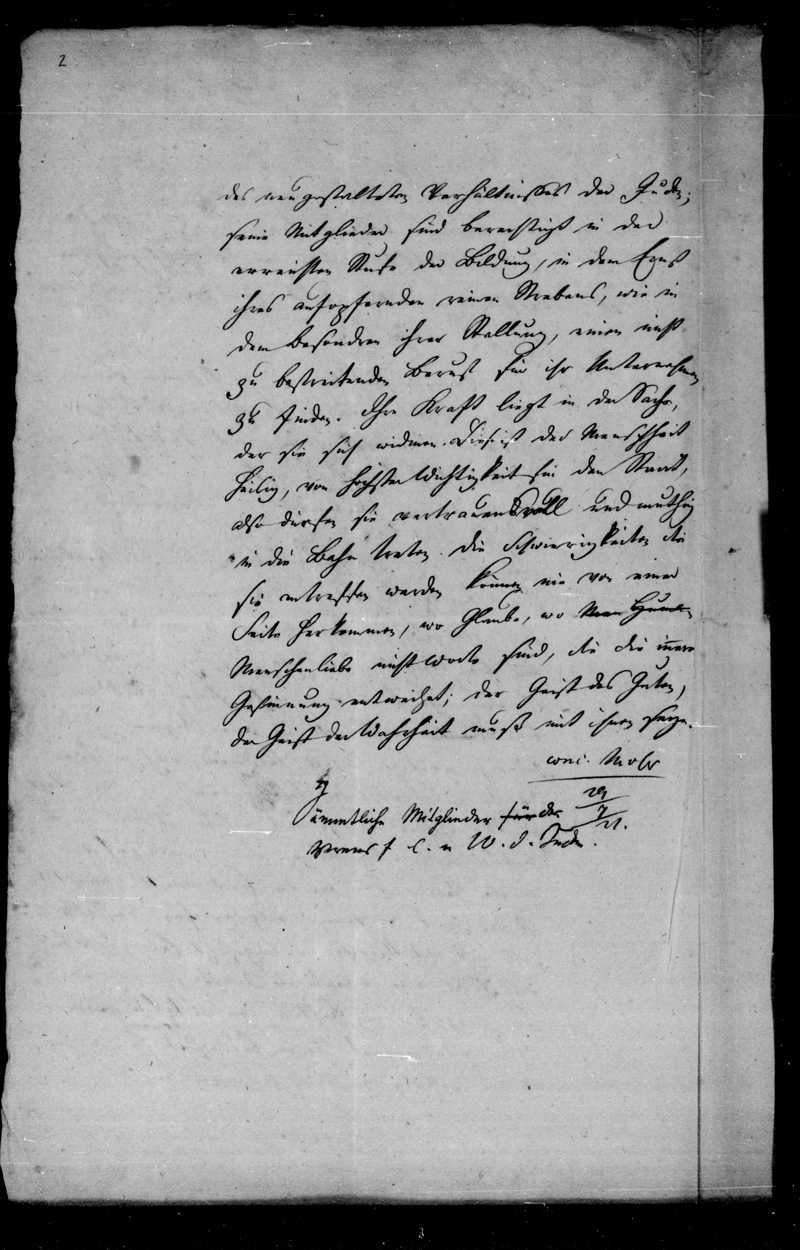 2
des neugestalteten Verhältnisses der Juden;
seine Mitglieder sind berechtigt in der
erreichten Stufe der Bildung, in dem Ernst
ihres aufopfernden reinen Strebens, wie in
dem Besondren ihrer Stellung, einen nicht
zu bestreitenden Beruf für ihr Unternehmen
zu finden. Ihre Kraft liegt in der Sache,
der sie sich widmen. Diese ist der Menschheit
heilig, von höchster Wichtigkeit für den Staat,
also dürfen sie vertrauensvoll und muthig
in die Bahn treten. Die Schwierigkeiten die
sie antreffen werden können nie von einer
Seite herkommen, wo Glaube, wo
Menschenliebe nicht Worte sind, die die innere
Gesinnung entweihet; der Geist des Guten,
der Geist der Wahrheit muß mit ihnen seyn.
conc. Moser
29
7
21.
ämmtliche Mitglieder für des
Vereins f C. u W. d. Juden.